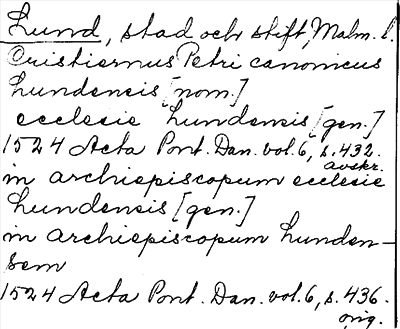 Lund, stad och stift, Malm. l.
Cristiernus Petri canonicus
Lundensis [nom.]
ecclesie Lundensis [gen.]
1524 Acta Pont. Dan. vol. 6, s. 432.
avskr.
in archiepiscopum ecclesie
Lundensis [gen.]
in archiepiscopum Lunden-
sem
1524 Acta Pont. Dan. vol. 6, s. 436.
orig.